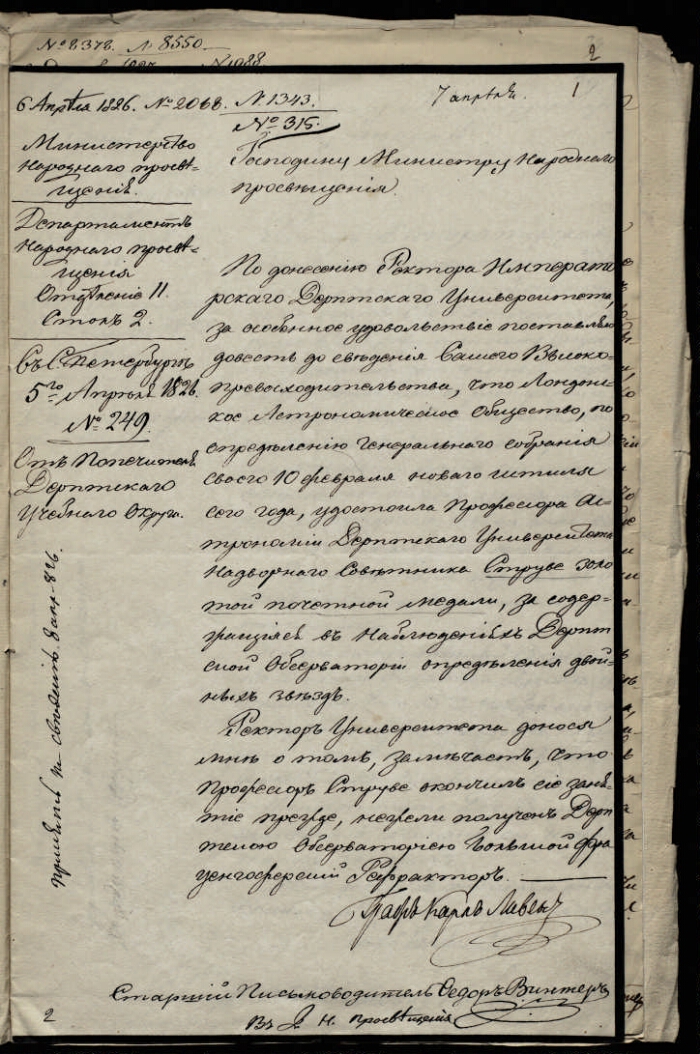 № 8378. № 8550.
2
6 Апрѣля 1826. № 2068. № 1343. 7 апрѣля. 1
№ 315.
Министерство
Народнаго просвѣ-
щенія.
Департаментъ
Народнаго просвѣ-
щенія
Отдѣленіе II.
Столъ 2.
Въ С. Петербургѣ
5го Апрѣля 1826.
№ 249.
Отъ Попечителя
Дерптскаго
Учебнаго Округа.
Господину Министру Народнаго
просвѣщенія.
По донесенію Ректора Императо-
рскаго Дерптскаго Университета,
за особенное удовольствіе поставляю
довесть до свѣденія Вашего Высоко-
превосходительства, что Лондон-
ское Астрономическое Общество, по
опредѣленію Генеральнаго собранія
своего 10 февраля новаго штиля
сего года, удостоила Профессора Ас-
трономіи Дерптскаго Университета
Надворнаго Совѣтника Струве золо-
той почетной медали, за содер-
жащіяся въ Наблюденіяхъ Дерпт-
ской Обсерваторіи опредѣленія двой-
ныхъ звѣздъ.
Ректоръ Университета донося
мнѣ о томъ, замѣчаетъ, что
Профессоръ Струве окончилъ сіе заня-
тіе прежде, нежели полученъ Дерп-
тскою Обсерваторіею большой фрау-
енгоферскій Рефракторъ.
Графъ Карлъ Ливенъ
Старшій Письмоводитель Федоръ Винтеръ
2